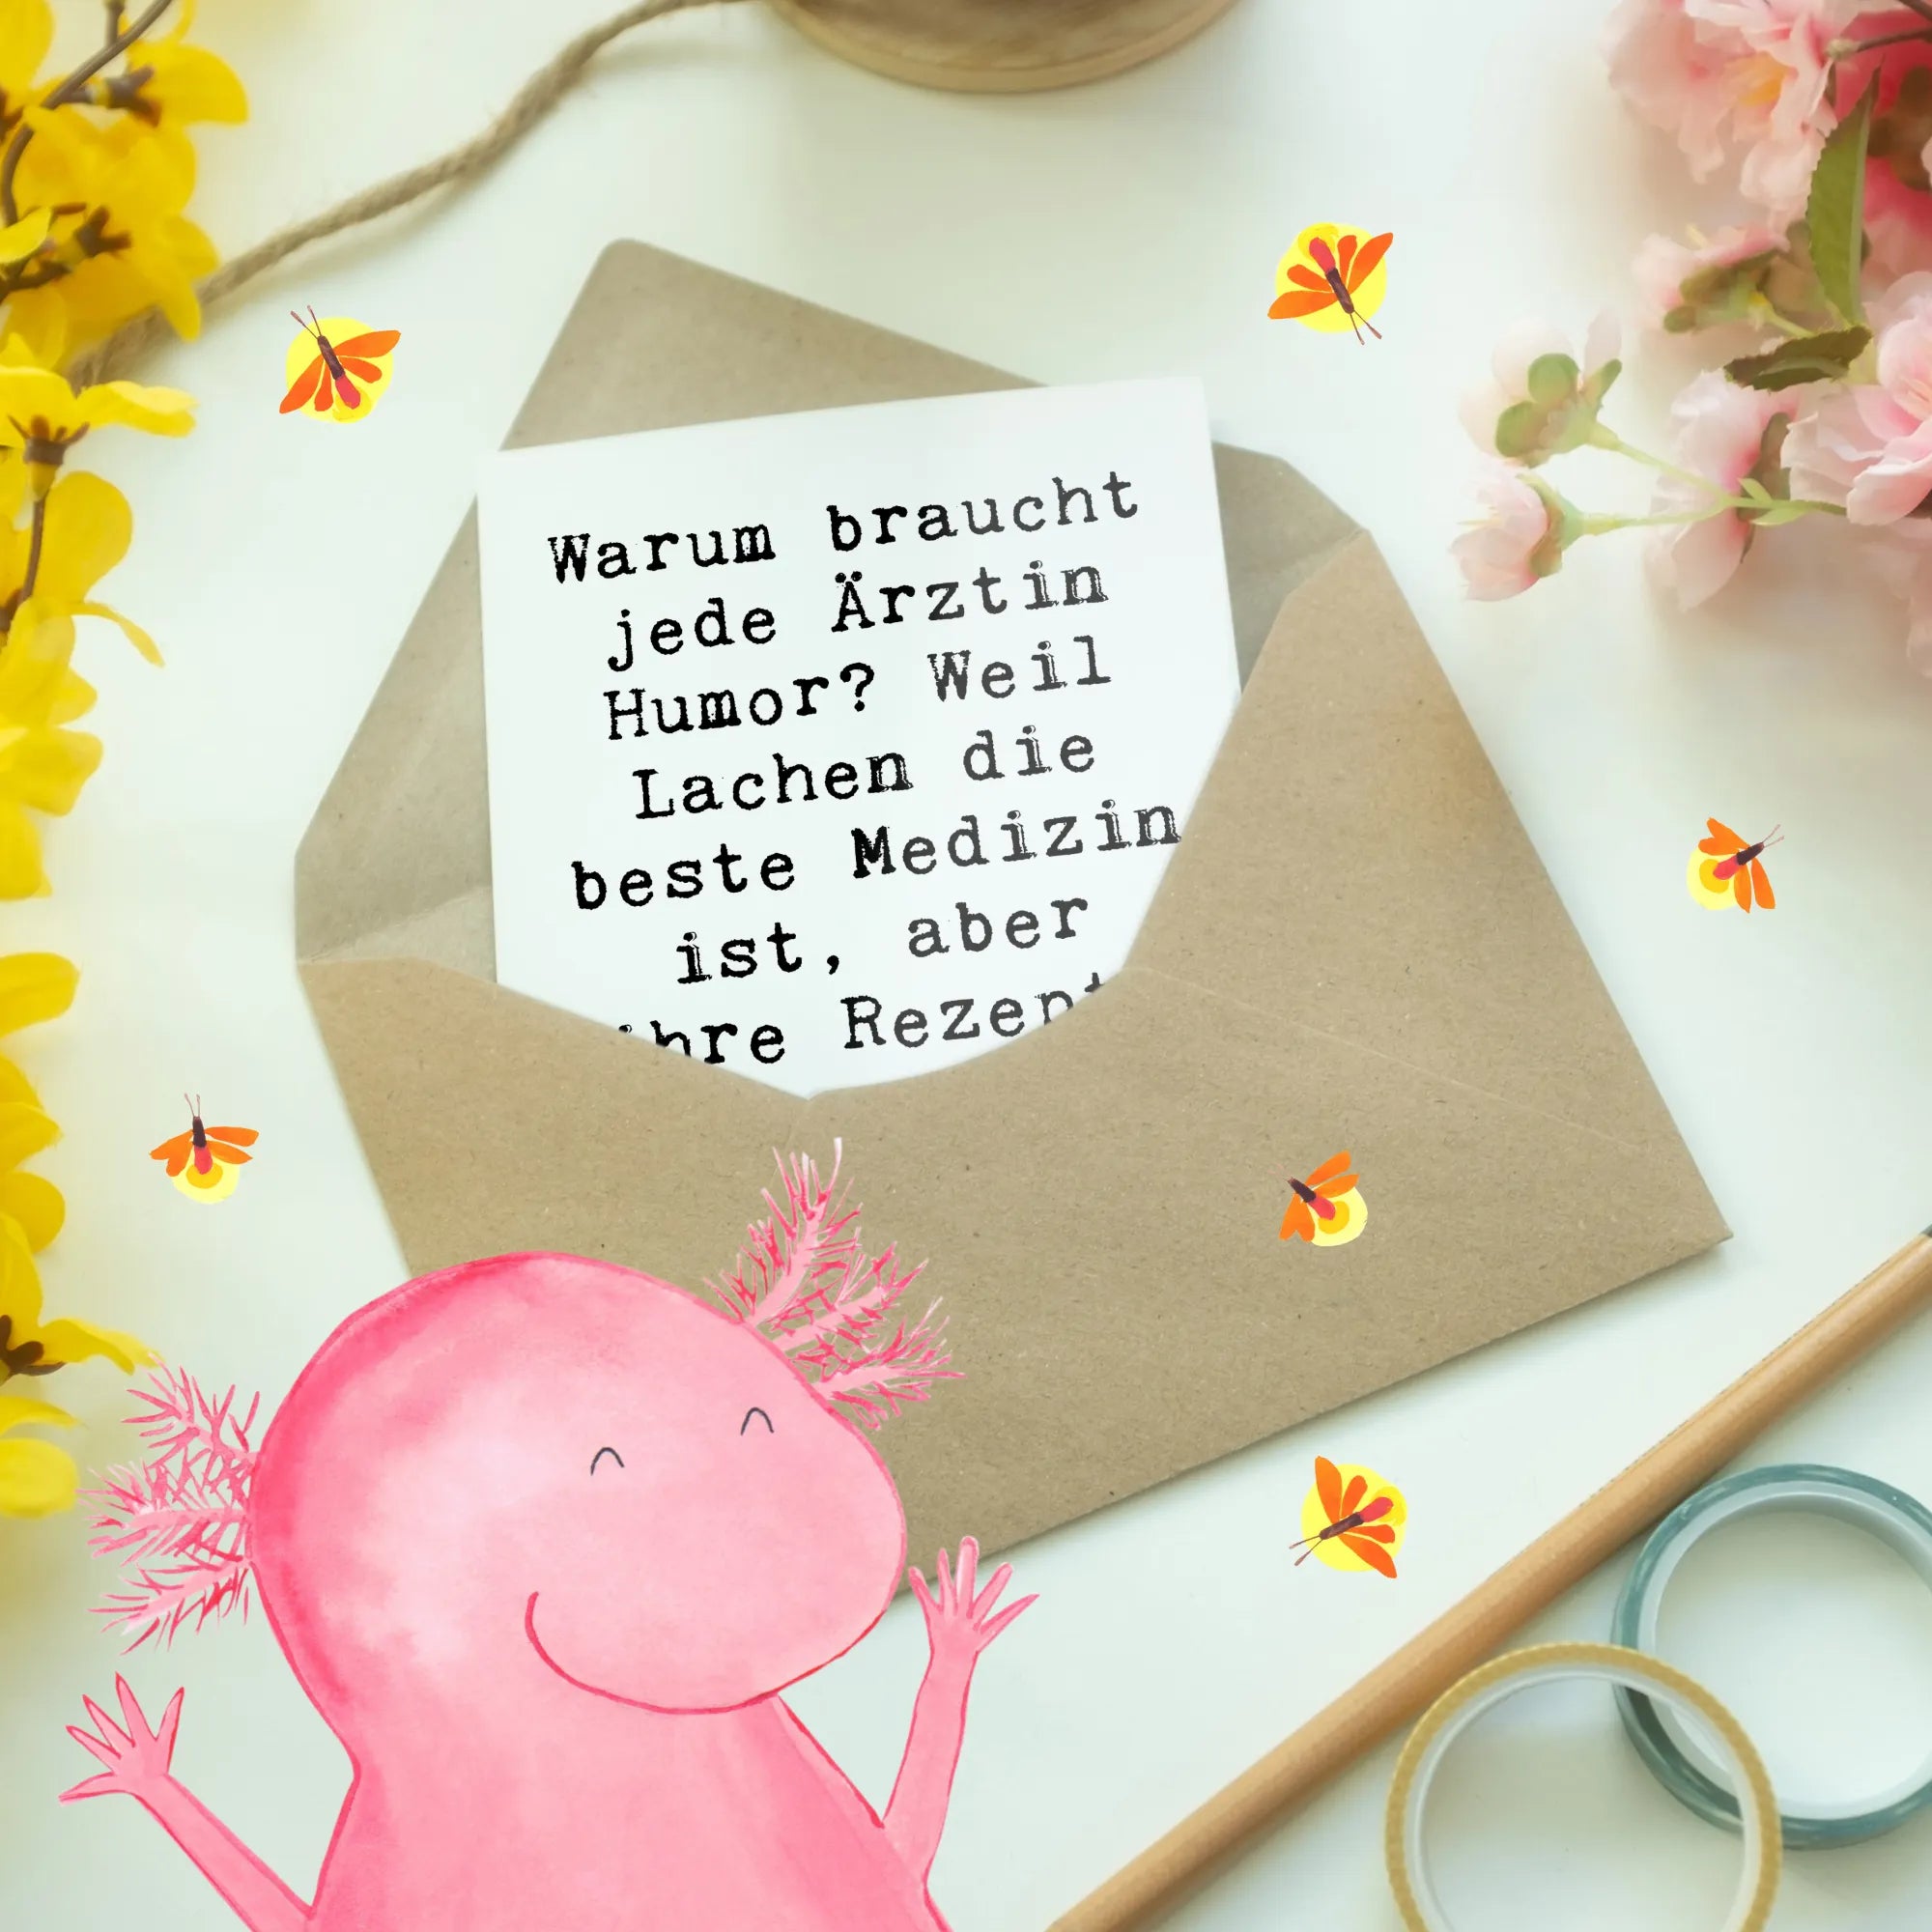 Warum braucht
jede Ärztin
Humor? Weil
Lachen die
beste Medizin
ist, aber